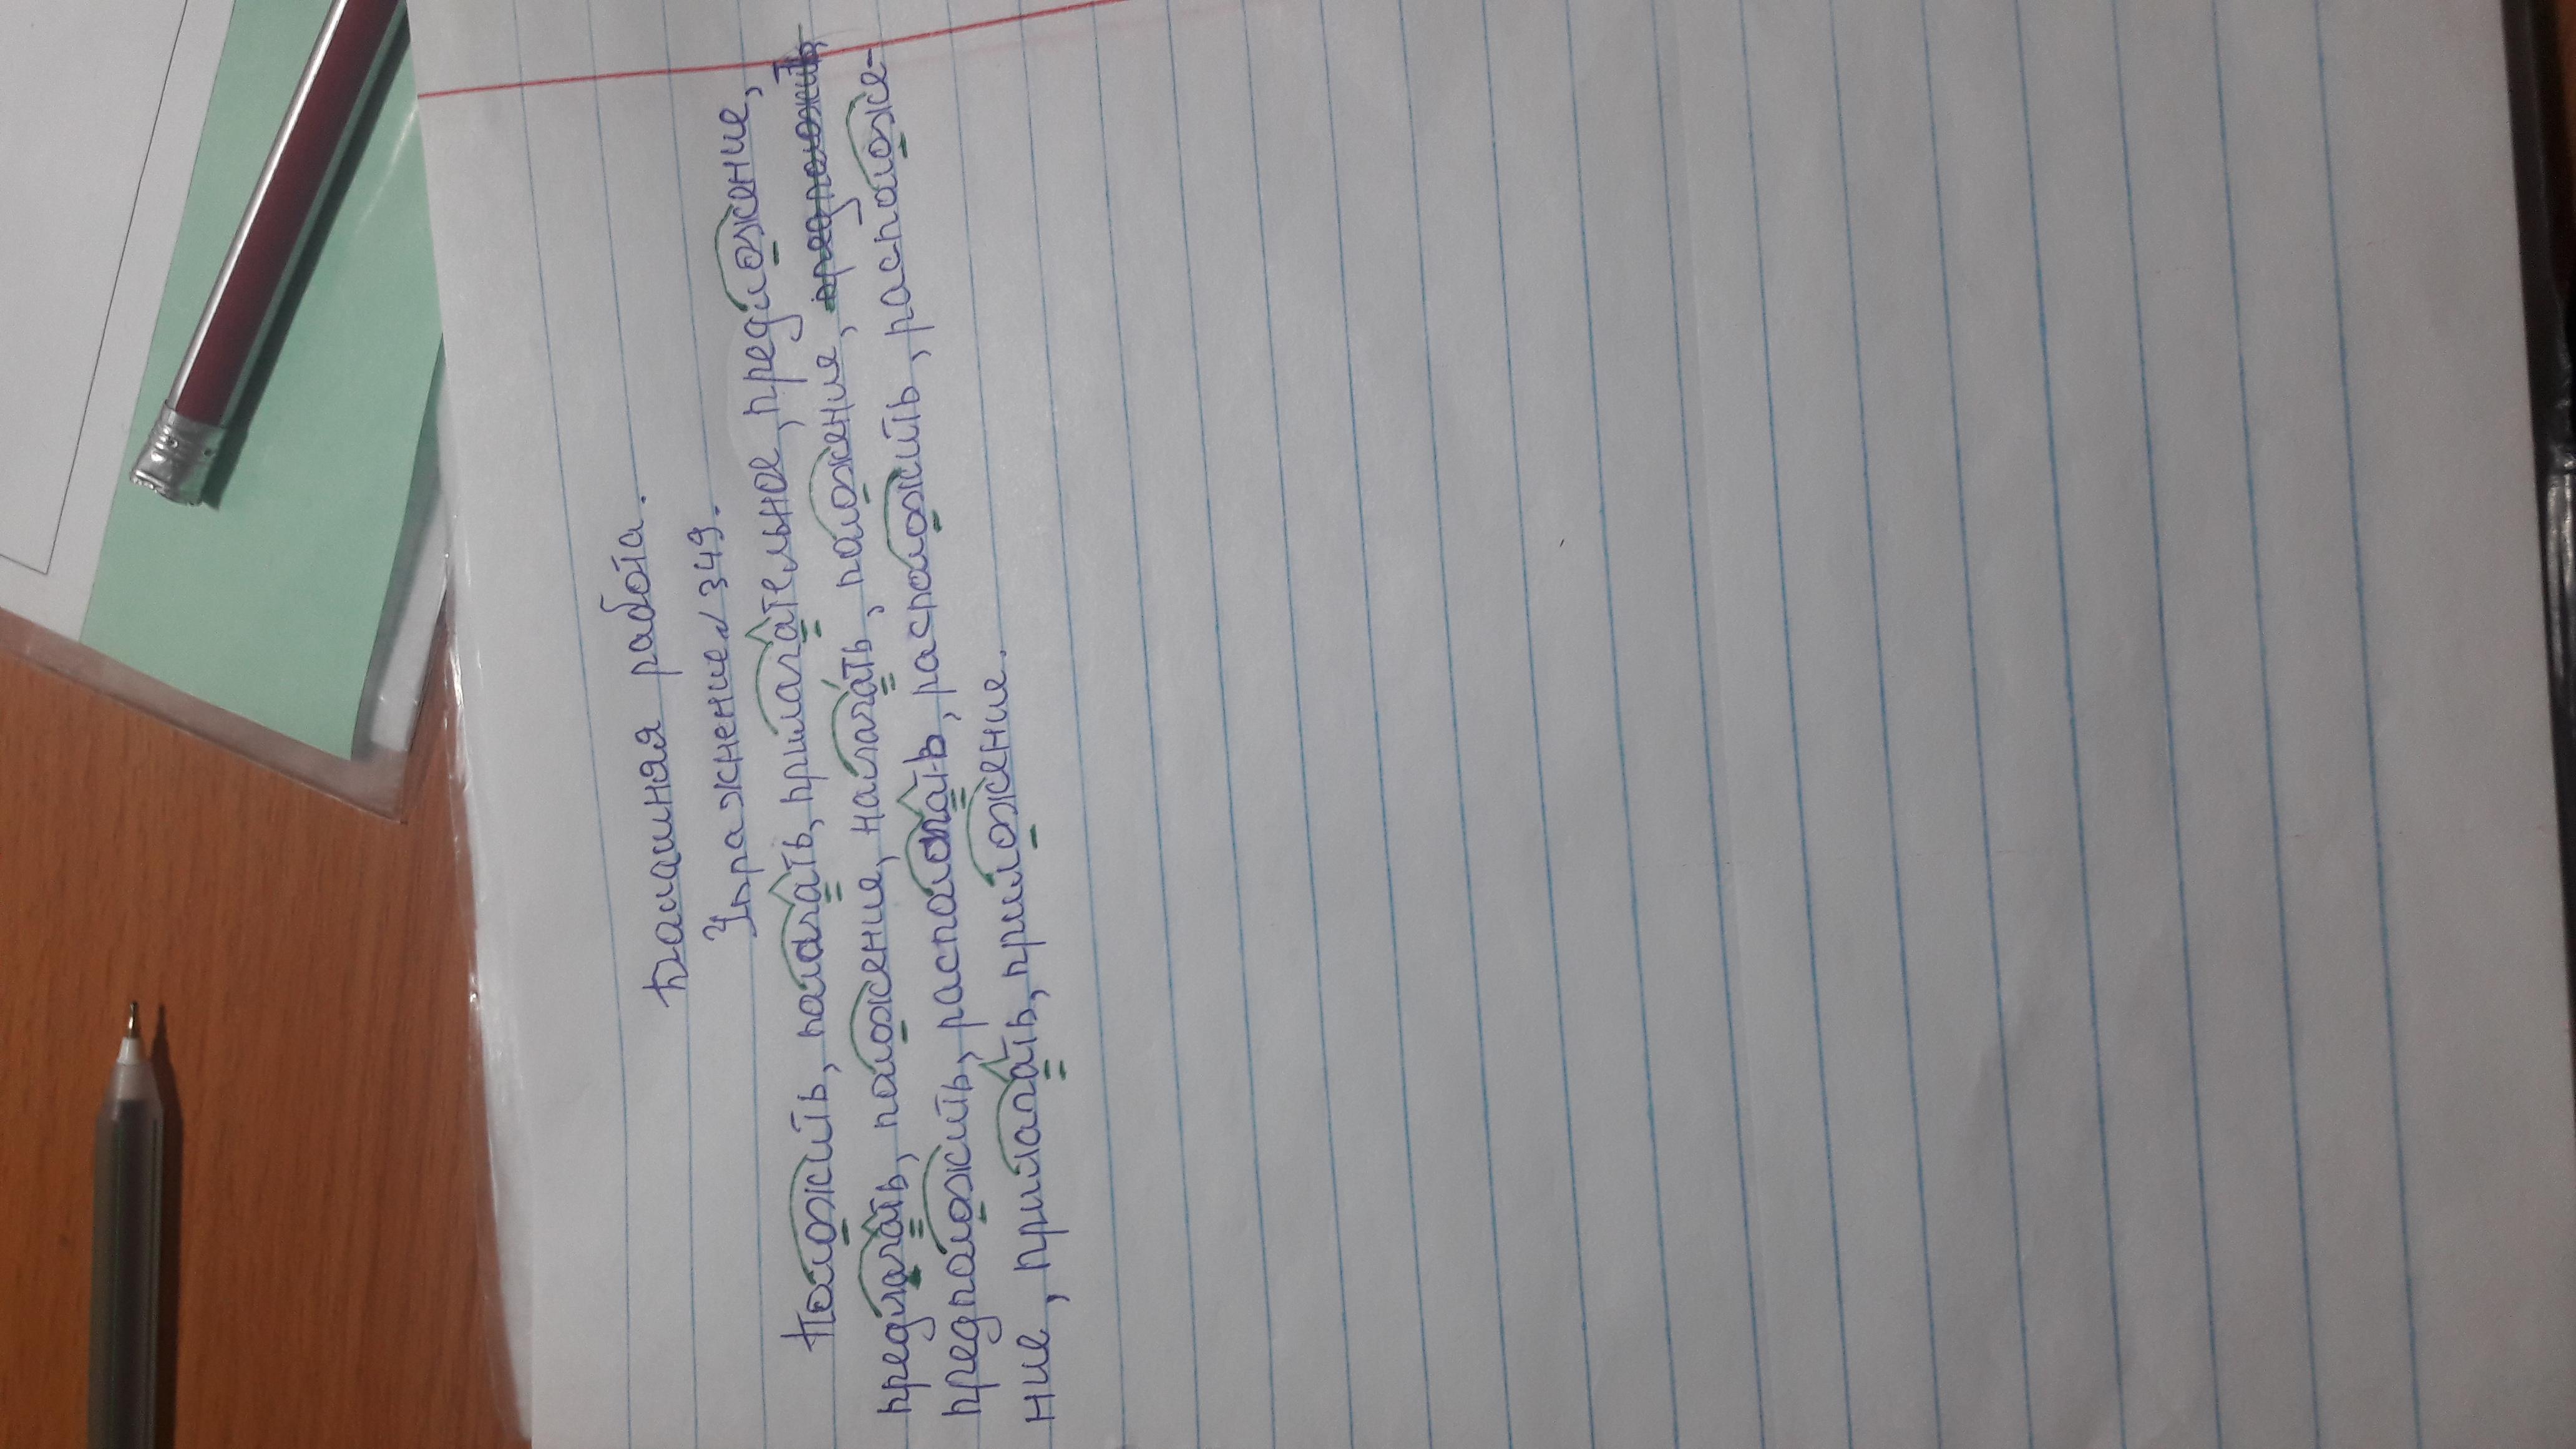 Домашняя работа.
Упражнение 349.
Положить, полагать, прилагательное, предложение,
предлагать, положение, налагать, положение, предположить,
предположить, располагать, расположить, расположе-
ние, прилагать, приложение.